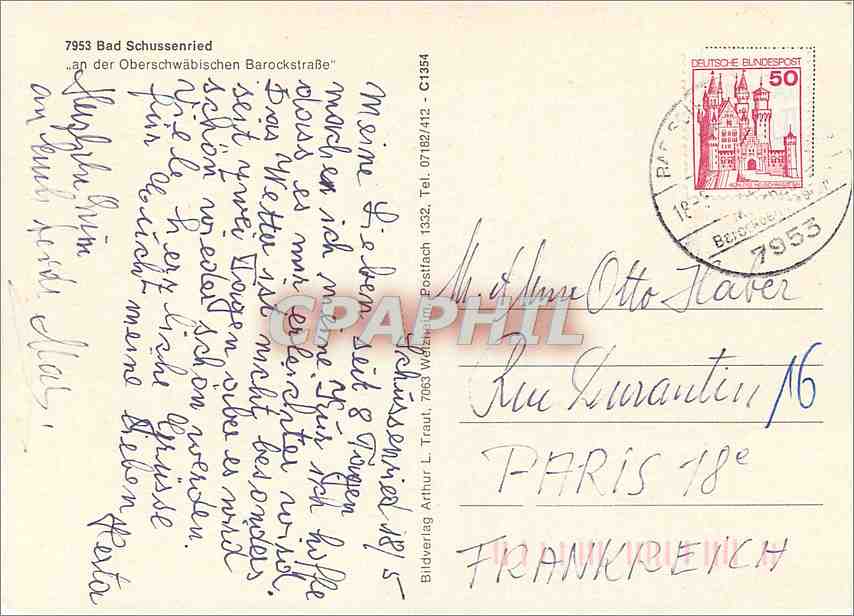 7953 Bad Schussenried
„an der Oberschwäbischen Barockstraße“
Schussenried 18/5
Meine Lieben, seit 8 Tagen
mache ich meine Kur ich hoffe
dass es mir erleichter wird.
Das Wetter ist nicht besonders
seit zwei Tagen aber es wird
schön wieder schön werden.
Viele herzliche Grüsse
für Euch meine Lieben
Herta
an Euch beide
Bildverlag Arthur L. Traut, 7063 Welzheim, Postfach 1332, Tel. 07182/412 - C1354
DEUTSCHE BUNDESPOST
50
7953
M. et Mme Otto Haber
Rue Durantin 16
PARIS 18e
FRANKREICH
CPAPHIL